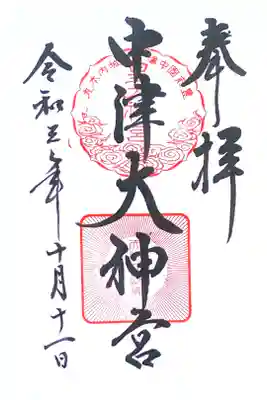 奉拝
中津大神宮
令和三年十月十一日